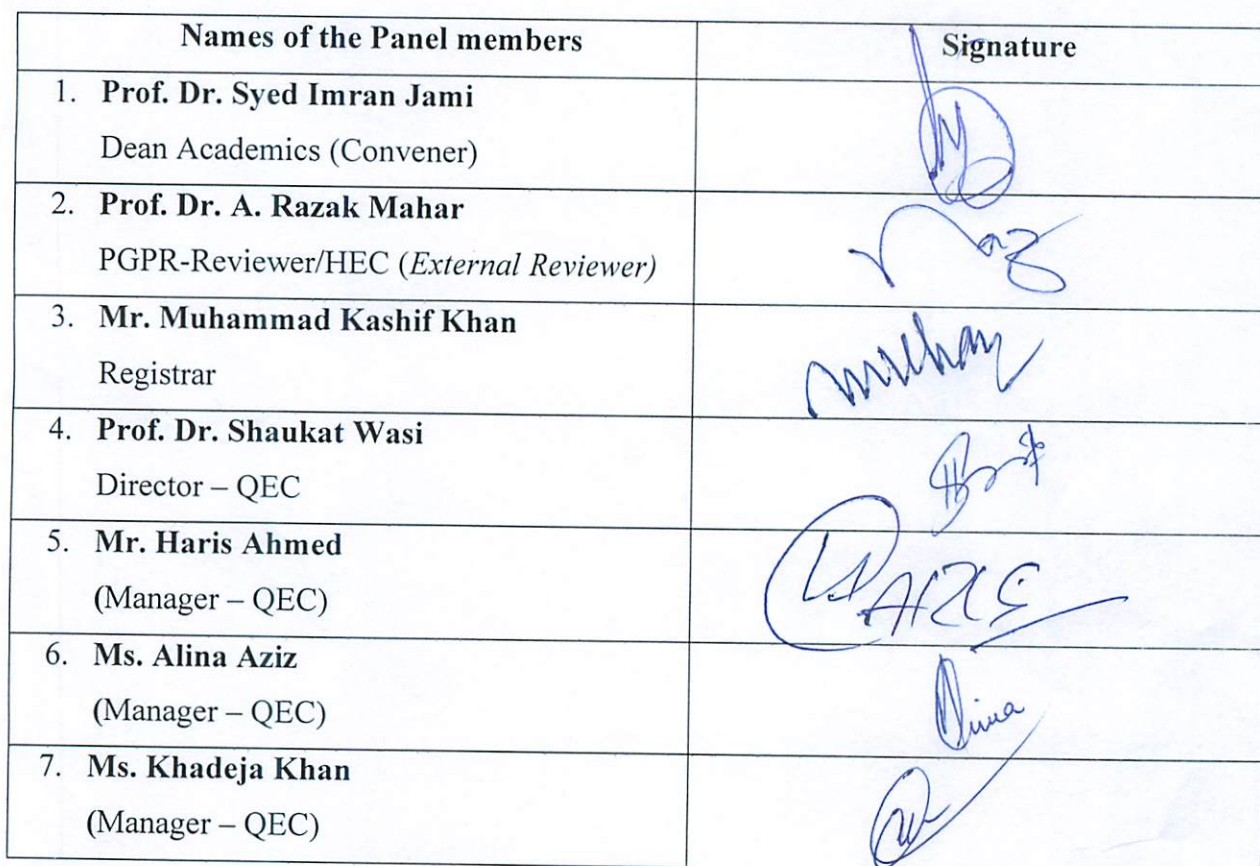 Names of the Panel members Signature
1. Prof. Dr. Syed Imran Jami
Dean Academics (Convener)
2. Prof. Dr. A. Razak Mahar
PGPR-Reviewer/HEC (External Reviewer)
3. Mr. Muhammad Kashif Khan
Registrar
4. Prof. Dr. Shaukat Wasi
Director – QEC
5. Mr. Haris Ahmed
(Manager – QEC)
6. Ms. Alina Aziz
(Manager – QEC)
Alina
7. Ms. Khadeja Khan
(Manager – QEC)